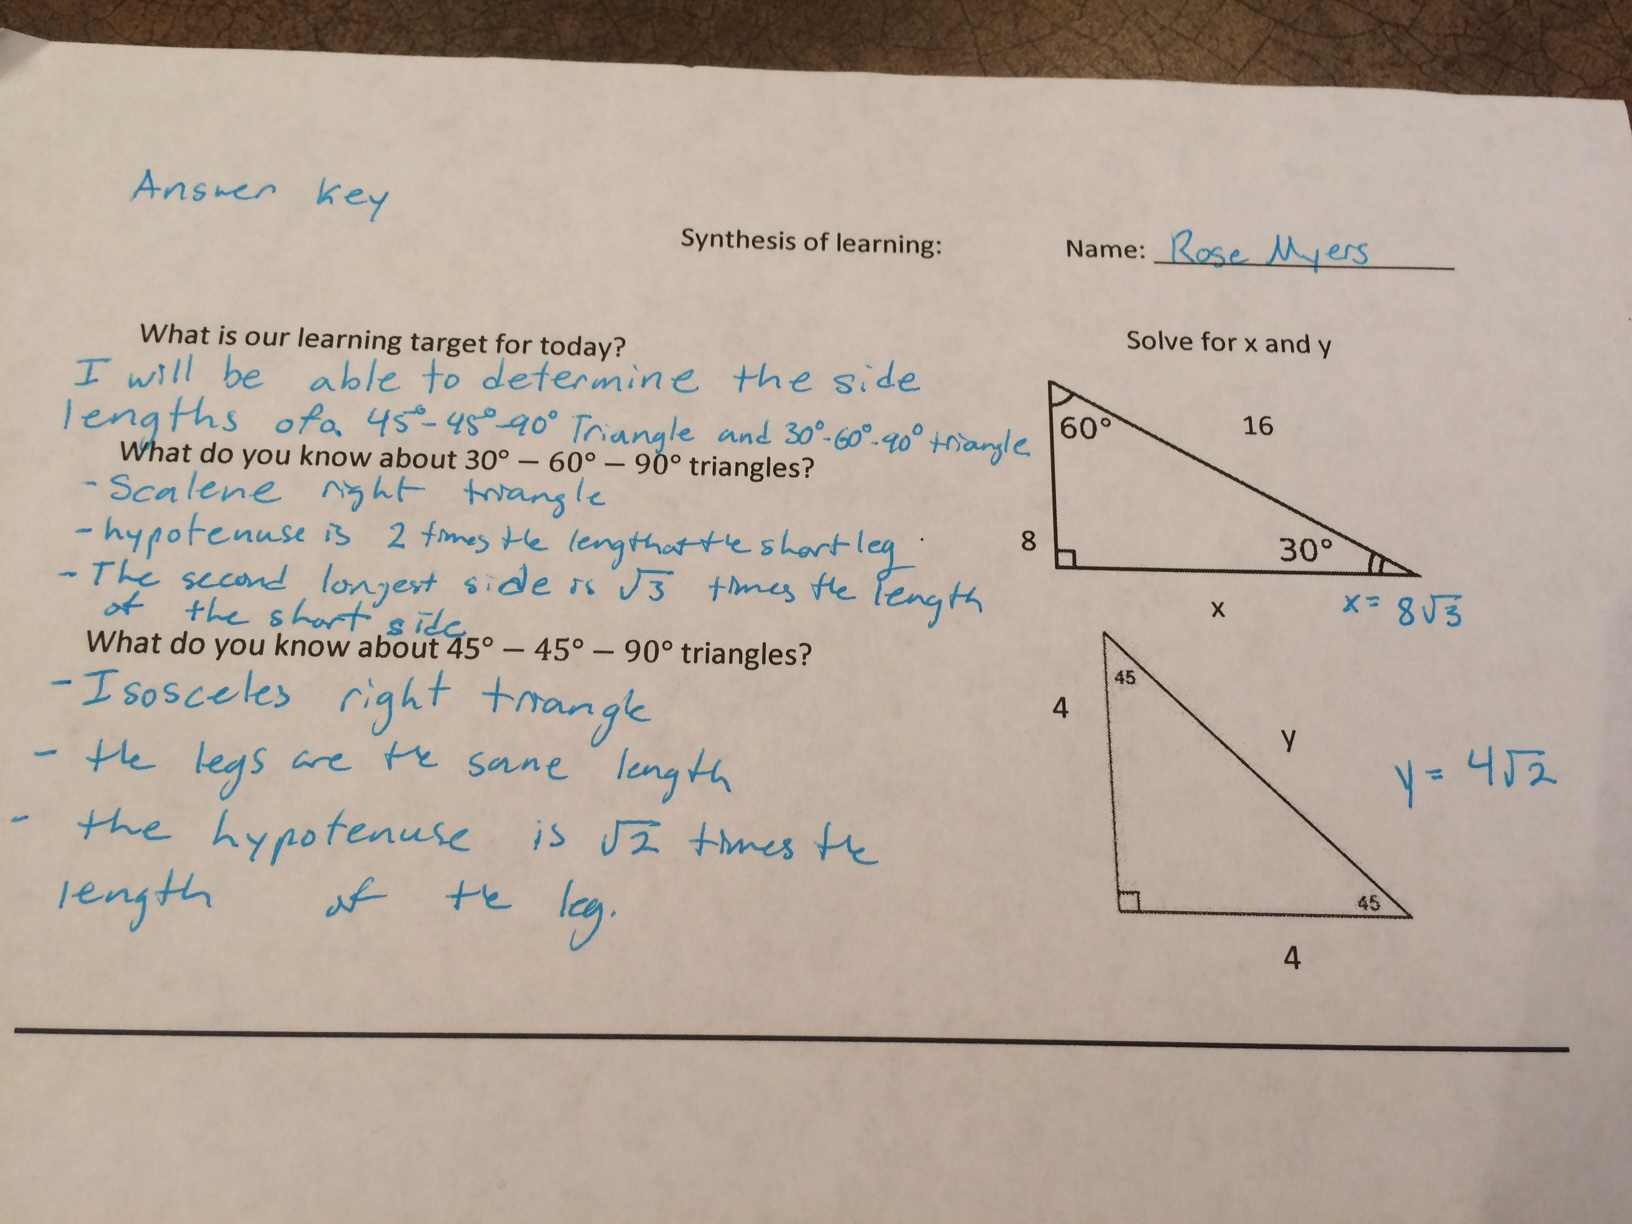 Answer Key
Synthesis of learning:
Name: Rose Myers
What is our learning target for today?
I will be able to determine the side
lengths of a 45°-45°-90° Triangle and 30°-60°-90° triangle
What do you know about 30° – 60° – 90° triangles?
- Scalene right triangle
- hypotenuse is 2 times the length of the short leg
- The second longest side is √3 times the length
of the short side
What do you know about 45° – 45° – 90° triangles?
- Isosceles right triangle
- the legs are the same length
- the hypotenuse is √2 times the
length of the leg.
Solve for x and y
60°
16
8
30°
x
x = 8√3
45
4
y
y = 4√2
45
4